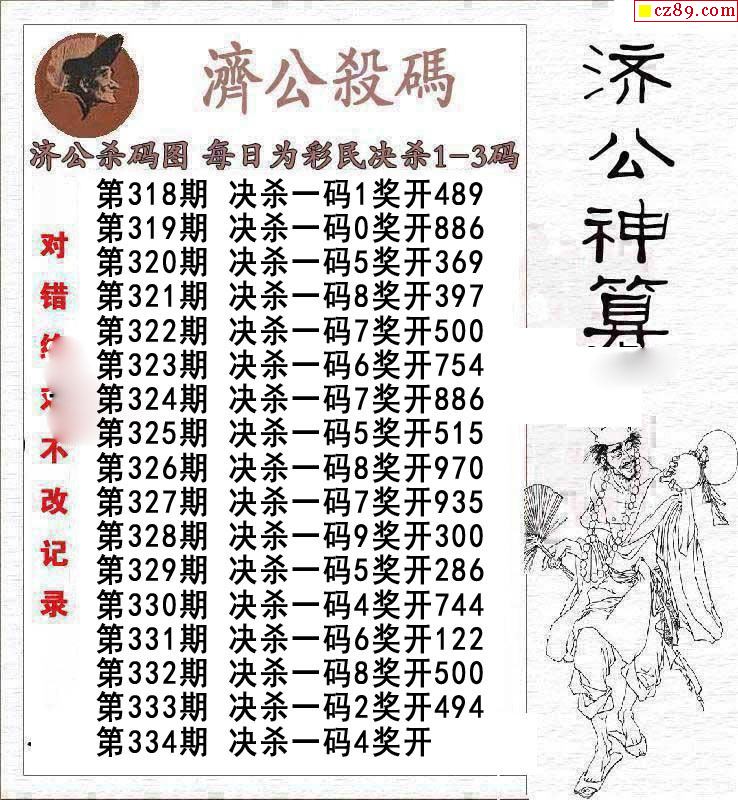 cz89.com
濟公殺碼
济公杀码图 每日为彩民决杀1-3码
第318期 决杀一码1奖开489
第319期 决杀一码0奖开886
第320期 决杀一码5奖开369
第321期 决杀一码8奖开397
第322期 决杀一码7奖开500
第323期 决杀一码6奖开754
第324期 决杀一码7奖开886
第325期 决杀一码5奖开515
第326期 决杀一码8奖开970
第327期 决杀一码7奖开935
第328期 决杀一码9奖开300
第329期 决杀一码5奖开286
第330期 决杀一码4奖开744
第331期 决杀一码6奖开122
第332期 决杀一码8奖开500
第333期 决杀一码2奖开494
第334期 决杀一码4奖开
对错
不改记录
济公神算